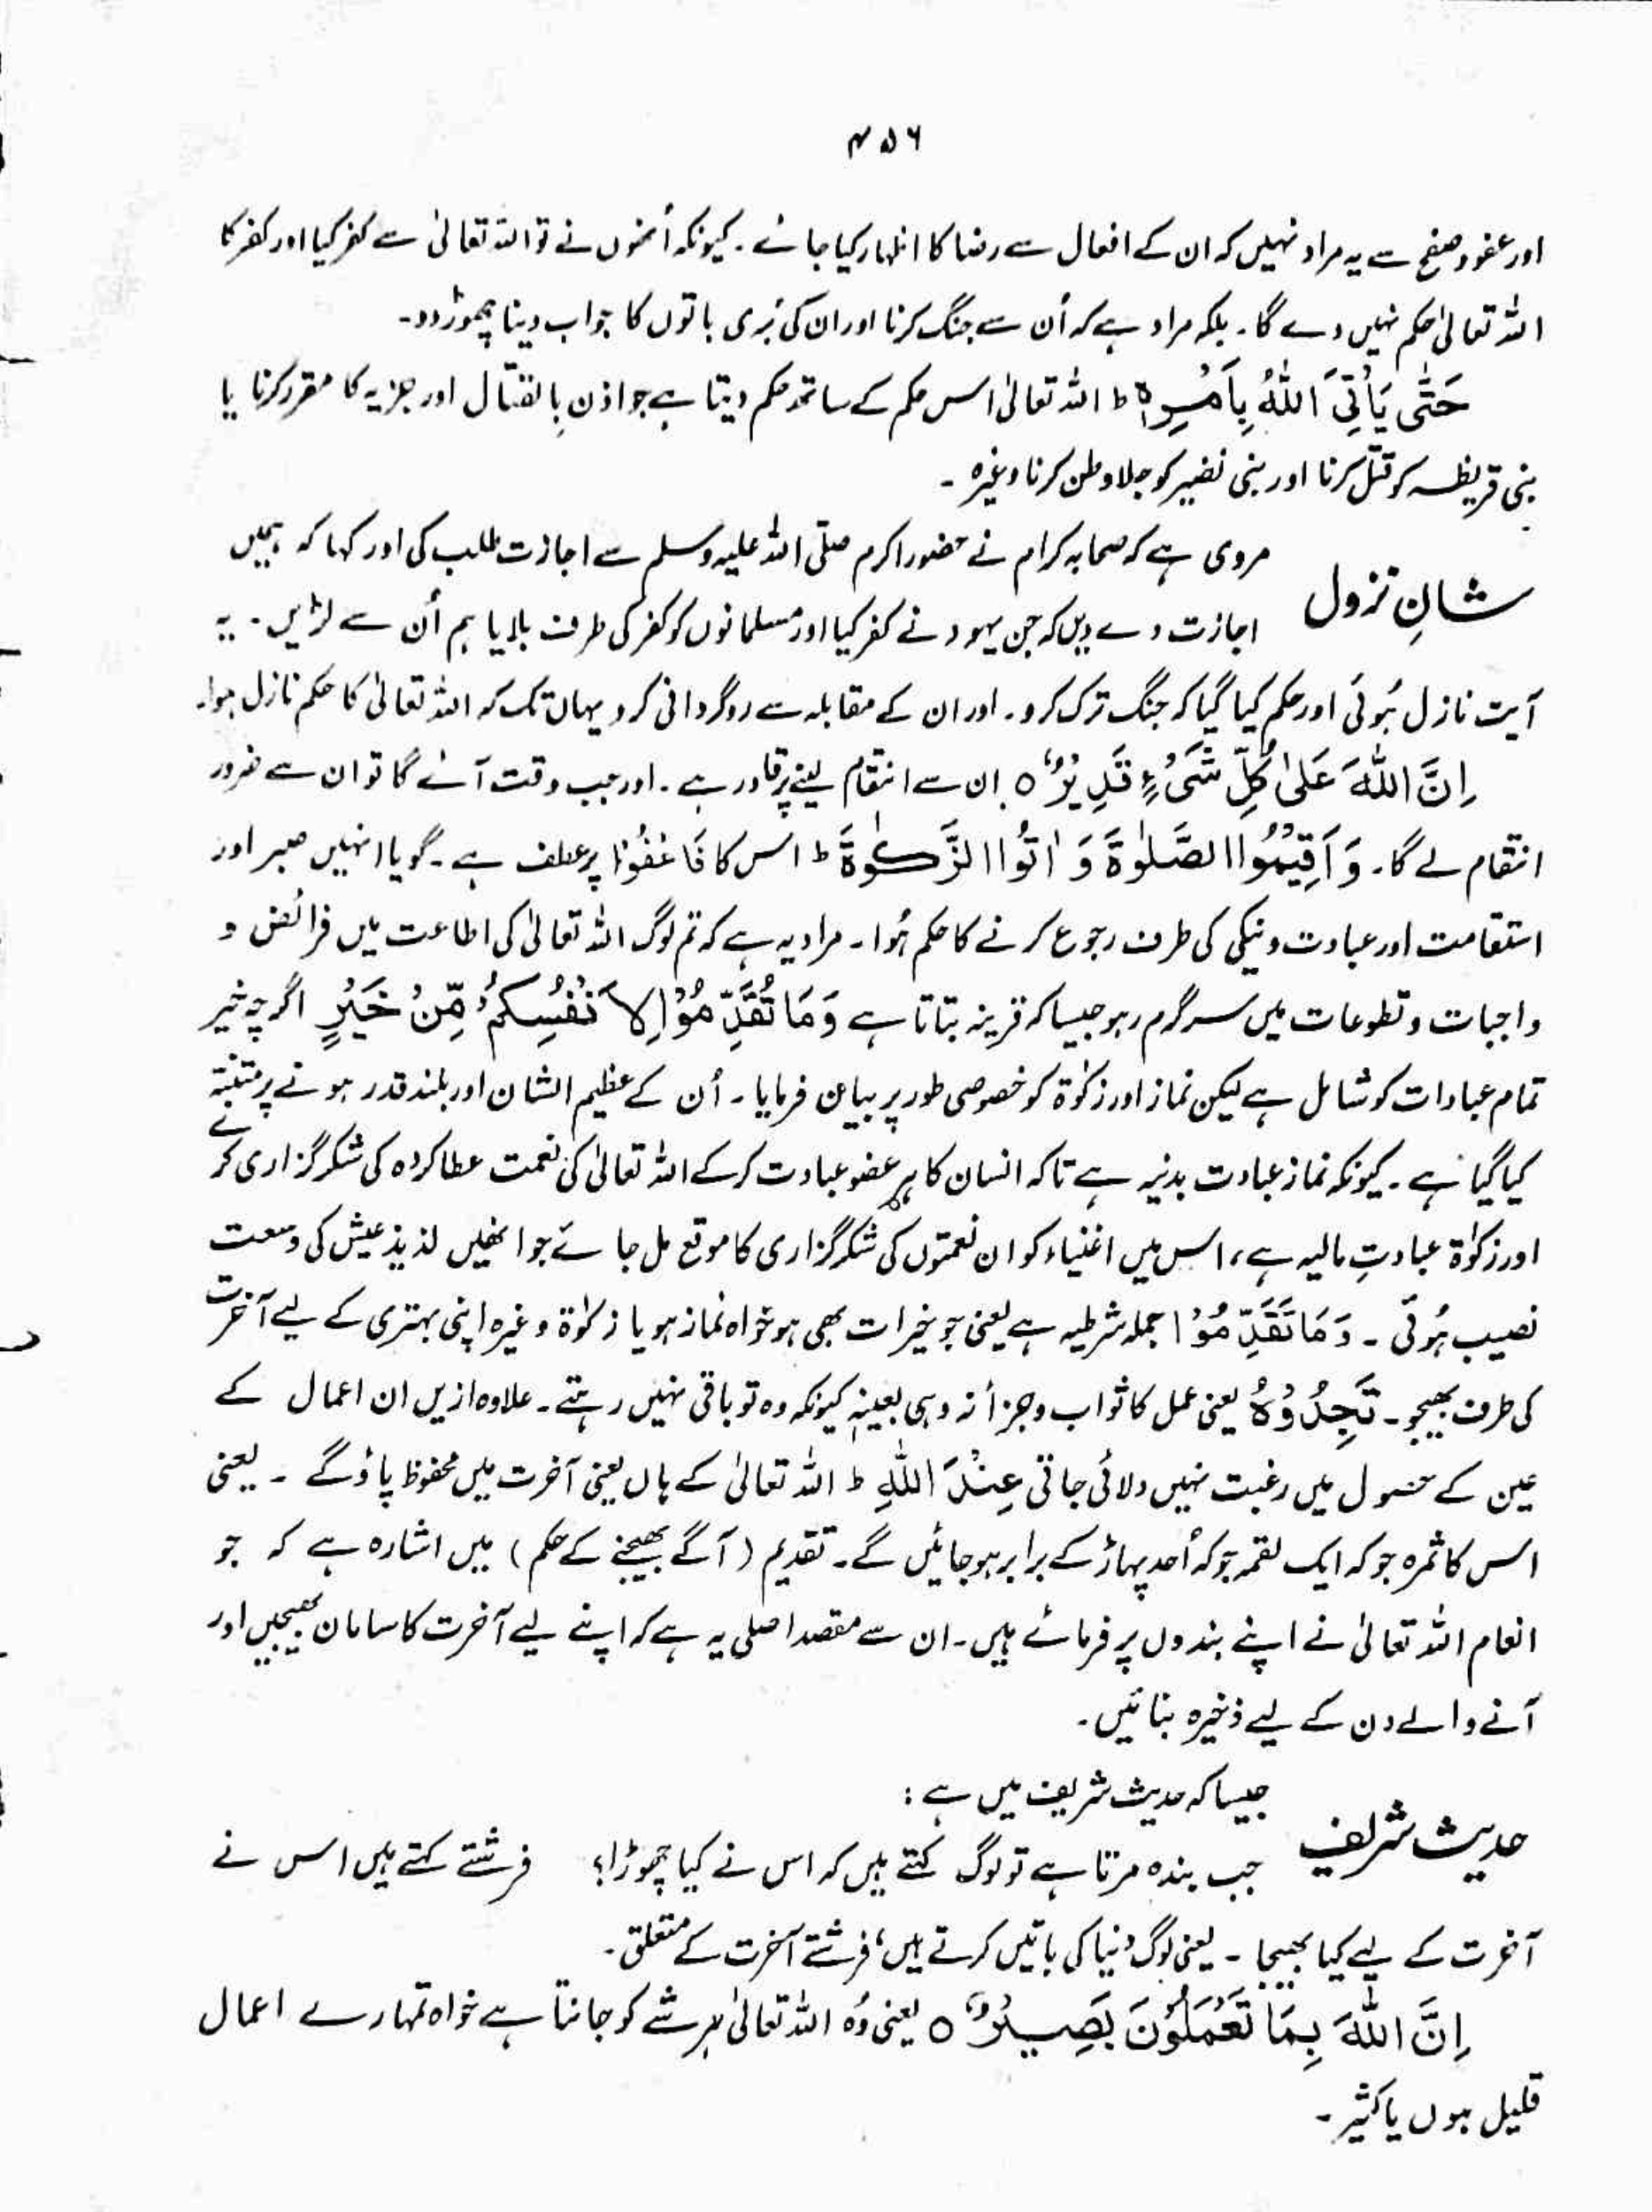 ۴۵۶
اور عفو و صفح سے یہ مراد نہیں کہ ان کے افعال سے رضا کا اظہار کیا جائے۔ کیونکہ اُنھوں نے تو اللہ تعالیٰ سے کفر کیا اور کفر کا
اللہ تعالیٰ حکم نہیں دے گا۔ بلکہ مراد ہے کہ اُن سے جنگ کرنا اور ان کی بُری باتوں کا جواب دینا چھوڑ دو۔
حَتّٰی یَاْتِیَ اللّٰہُ بِاَمْرِہٖ ط اللہ تعالیٰ اس حکم کے ساتھ حکم دیتا ہے جو اذن بالقتال اور جزیہ کا مقرر کرنا یا
بنی قریظہ کو قتل کرنا اور بنی نضیر کو جلاوطن کرنا وغیرہ۔
شانِ نزول مروی ہے کہ صحابہ کرام نے حضور اکرم صلی اللہ علیہ وسلم سے اجازت طلب کی اور کہا کہ ہمیں
اجازت دے دیں کہ جن یہود نے کفر کیا اور مسلمانوں کو کفر کی طرف بلایا ہم اُن سے لڑیں۔ یہ
آیت نازل ہُوئی اور حکم کیا گیا کہ جنگ ترک کرو۔ اور ان کے مقابلہ سے روگردانی کرو یہاں تک کہ اللہ تعالیٰ کا حکم نازل ہو۔
اِنَّ اللّٰہَ عَلٰی کُلِّ شَیْءٍ قَدِیْرٌ ○ ان سے انتقام لینے پر قادر ہے۔ اور جب وقت آئے گا تو ان سے ضرور
انتقام لے گا۔ وَ اَقِیْمُوا الصَّلٰوۃَ وَ اٰتُوا الزَّکٰوۃَ ط اس کا فَاعْفُوْا پر عطف ہے۔ گویا انہیں صبر اور
استقامت اور عبادت و نیکی کی طرف رجوع کرنے کا حکم ہُوا۔ مراد یہ ہے کہ تم لوگ اللہ تعالیٰ کی اطاعت میں فرائض و
واجبات و تطوعات میں سرگرم رہو جیسا کہ قرینہ بتاتا ہے وَمَا تُقَدِّمُوْا لِاَنْفُسِکُمْ مِّنْ خَیْرٍ اگرچہ خیر
تمام عبادات کو شامل ہے لیکن نماز اور زکوٰۃ کو خصوصی طور پر بیان فرمایا۔ اُن کے عظیم الشان اور بلند قدر ہونے پر متنبّہ
کیا گیا ہے۔ کیونکہ نماز عبادت بدنیہ ہے تاکہ انسان کا ہر عضو عبادت کرکے اللہ تعالیٰ کی نعمت عطا کردہ کی شکر گزاری کرے
اور زکوٰۃ عبادتِ مالیہ ہے، اس میں اغنیاء کو ان نعمتوں کی شکر گزاری کا موقع مل جائے جو انھیں لذیذ عیش کی وسعت
نصیب ہُوئی۔ وَمَا تُقَدِّمُوْا جملہ شرطیہ ہے یعنی جو خیرات بھی ہو خواہ نماز ہو یا زکوٰۃ وغیرہ اپنی بہتری کے لیے آخرت
کی طرف بھیجو۔ تَجِدُوْہُ یعنی عمل کا ثواب و جزا نہ وہی بعینہٖ کیونکہ وہ تو باقی نہیں رہتے۔ علاوہ ازیں ان اعمال کے
عین کے حصول میں رغبت نہیں دلائی جاتی عِنْدَ اللّٰہِ ط اللہ تعالیٰ کے ہاں یعنی آخرت میں محفوظ پاؤ گے۔ یعنی
اس کا ثمرہ جو کہ ایک لقمہ جو کہ اُحد پہاڑ کے برابر ہو جائیں گے۔ تقدیم (آگے بھیجنے کے حکم) میں اشارہ ہے کہ جو
انعام اللہ تعالیٰ نے اپنے بندوں پر فرمائے ہیں۔ ان سے مقصد اصلی یہ ہے کہ اپنے لیے آخرت کا سامان بھیجیں اور
آنے والے دن کے لیے ذخیرہ بنائیں۔
حدیث شریف جیسا کہ حدیث شریف میں ہے :
جب بندہ مرتا ہے تو لوگ کہتے ہیں کہ اس نے کیا چھوڑا؟ فرشتے کہتے ہیں اس نے
آخرت کے لیے کیا بھیجا۔ یعنی لوگ دنیا کی باتیں کرتے ہیں، فرشتے آخرت کے متعلق۔
اِنَّ اللّٰہَ بِمَا تَعْمَلُوْنَ بَصِیْرٌ ○ یعنی وُہ اللہ تعالیٰ ہر شے کو جانتا ہے خواہ تمہارے اعمال
قلیل ہوں یا کثیر۔